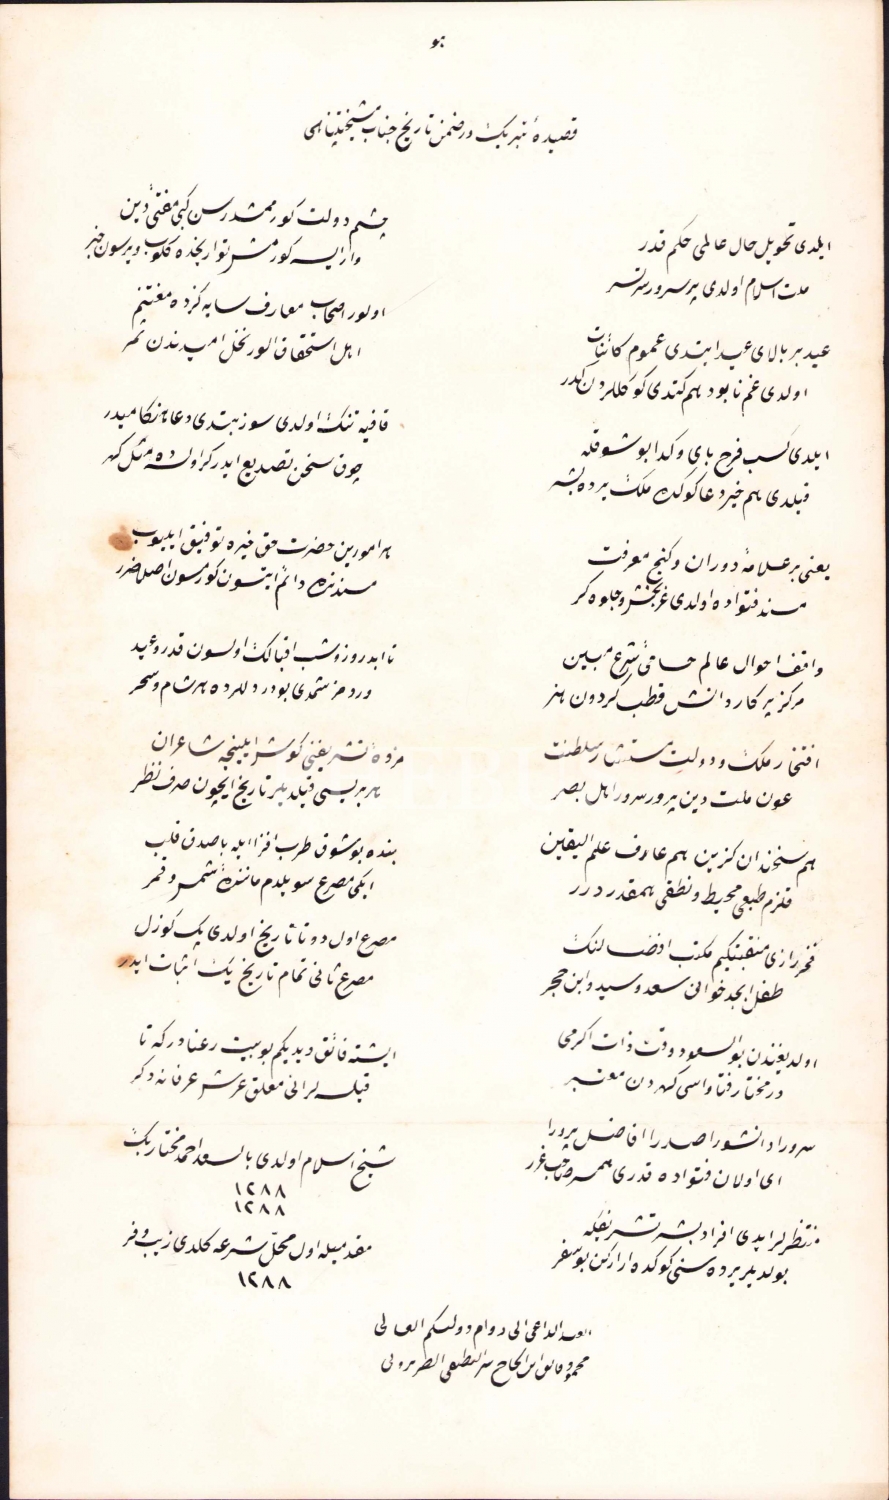 هو
قصیدهٔ تبریک در ضمن تاریخ جناب مشیختپناهی
ایلدی تحویل حال عالمی حکم قدر
ملت اسلام اولدی پرسرور سرتسر
عید بر بالای عید ایتدی عموم کائنات
اولدی غم نابود هم کتدی کوکللردن کدر
ایلدی کسب فرح بای و کدا بو شوقله
قیلدی هم خیر دعا کوکده ملک یرده بشر
یعنی بر علامهٔ دوران و کنج معرفت
مسند فتواده اولدی فربخش و جلوه کر
واقف احوال عالم حامئ شرع مبین
مرکز پرکار دانش قطب کردون هنر
افتخار ملک و دولت مستشار سلطنت
عون ملت دین پرور سرور اهل بصر
هم سخندان کزین هم عارف علم الیقین
قلزم طبعی محیط و نطقی همقدر درر
فخر رازی منقبتیکیم مکتب افضالنک
طفل ابجد خوانی سعد و سید و ابن حجر
اولدیغندن بو السعود وقت ذات اکرمی
در مختار فتاواسی کهردن معتبر
سرورا دانشورا صدرا افاضل پرورا
ای اولان فتواده قدری همسر صاحب غرر
منتظرلر ایدی افراد بشر تشریفکه
بولدیلر یرده سنی کوکده ارارکن بو سفر
چشم دولت کورممشدر سن کبی مفتئ دین
وار ایسه کورمش تواریخده کلوب ویرسون خبر
اولور اصحاب معارف سایه کزده مغتنم
اهل استحقاق الور نخل امیدندن ثمر
قافیه تنک اولدی سوز بتدی دعا هنکامیدر
چوق سخن تصدیع ایدر کر اولسه ده مثل کهر
هر امورین حضرت حق خیره توفیق ایلیوب
مسندنده دائم ایتسون کورمسون اصلا ضرر
تا ابد روز و شب اقبالک اولسون قدر و عید
وردمز شمدی بودر دللرده هر شام و سحر
مژدهٔ تشریفنی کوش ایلینجه شاعران
هر بریسی قیلدیلر تاریخ ایچون صرف نظر
بنده بو شوق طرب افزا ایله با صدق قلب
ایکی مصرع سویلدم مانندهٔ شمس و قمر
مصرع اول دو تا تاریخ اولدی پک کوزل
مصرع ثانی تمام تاریخ یک اثبات ایدر
ایشته فائق دیدیکم بو بیت رعنادر که تا
قیلسه لر انی معلق عرش عرفانه دکر
شیخ اسلام اولدی بالسعد احمد مختار بک
١٢٨٨
١٢٨٨
مقدمیله اول محل شرعه کلدی زیب و فر
١٢٨٨
العبد الداعی الی دوام دولتکم العالی
محمود فائق ابن الحاج